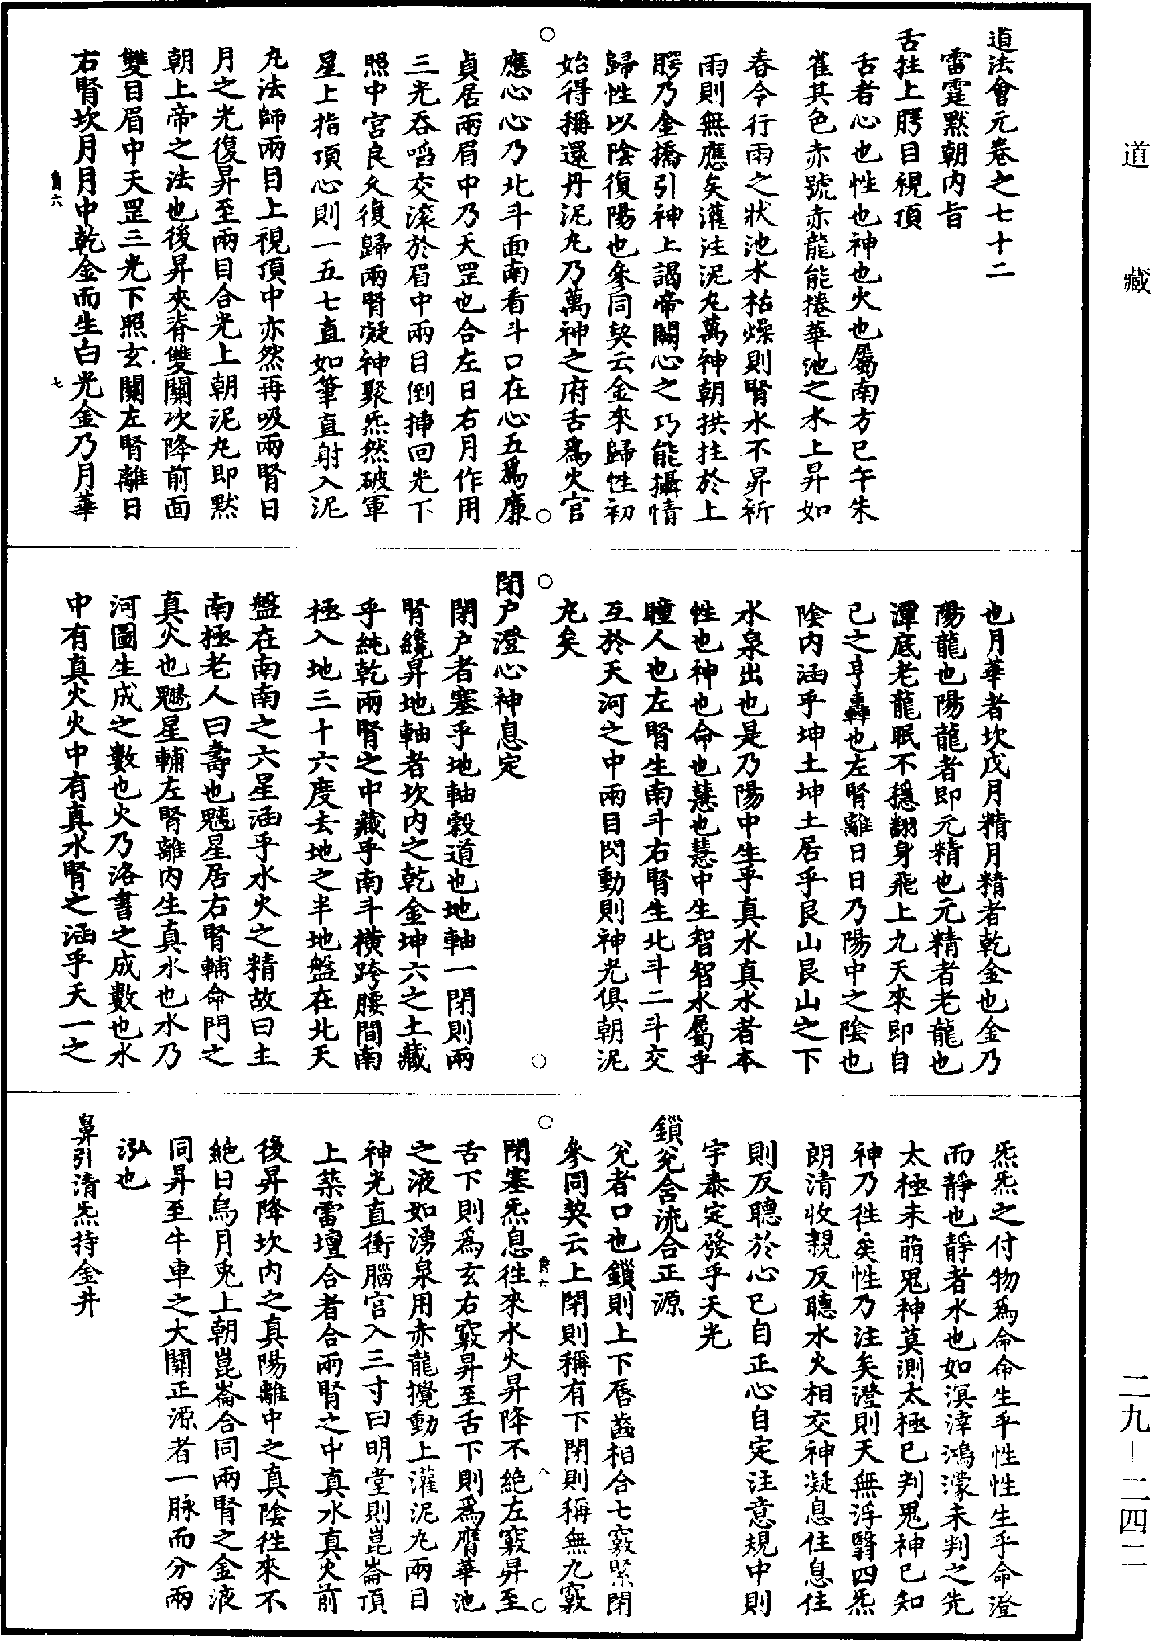 道藏
二九－二四二
道法會元卷之七十二
雷霆黙朝内旨
舌拄上腭目視頂
舌者心也性也神也火也屬南方巳午朱
雀其色赤號赤龍能捲華池之水上昇如
春今行雨之狀池水枯燥則腎水不昇祈
雨則無應矣灌注泥丸萬神朝拱拄於上
腭乃金橋引神上謁帝闕心之巧能攝情
歸性以陰復陽也參同契云金來歸性初
始得稱還丹泥丸乃萬神之府舌爲火官
應心心乃北斗面南看斗口在心五爲廉
貞居兩眉中乃天罡也合左日右月作用
三光吞㗖交滚於眉中兩目倒挿回光下
照中宫良乆復歸兩腎凝神聚炁然破軍
星上指頂心則一五七直如筆直射入泥
丸法師兩目上視頂中亦然再吸兩腎日
月之光復昇至兩目合光上朝泥丸即黙
朝上帝之法也後昇夾脊雙關次降前面
雙目眉中天罡三光下照玄關左腎離日
右腎坎月月中乾金而生白光金乃月華
也月華者坎戊月精月精者乾金也金乃
陽龍也陽龍者即元精也元精者老龍也
潭底老龍眠不穩翻身飛上九天來即自
己之亨轟也左腎離日日乃陽中之陰也
陰内涵乎坤土坤土居乎艮山艮山之下
水泉出也是乃陽中生乎真水真水者本
性也神也命也慧也慧中生智智水屬乎
瞳人也左腎生南斗右腎生北斗二斗交
互於天河之中兩目閃動則神光俱朝泥
丸矣
閉户澄心神息定
閉户者塞乎地軸穀道也地軸一閉則兩
腎纔昇地軸者坎内之乾金坤六之土藏
乎純乾兩腎之中藏乎南斗横跨腰間南
極入地三十六度去地之半地盤在北天
盤在南南之六星涵乎水火之精故曰主
南極老人曰壽也魒星居右腎輔命門之
真火也魓星輔左腎離内生真水也水乃
河圖生成之數也火乃洛書之成數也水
中有真火火中有真水腎之涵乎天一之
炁炁之付物爲命命生乎性性生乎命澄
而靜也靜者水也如溟涬鴻濛未判之先
太極未萌鬼神莫測太極巳判鬼神巳知
神乃徃矣性乃注矣澄則天無浮翳四炁
朗清收親反聽水火相交神凝息住息住
則反聽於心巳自正心自定注意規中則
宇泰定發乎天光
鎖兌含流合正源
兌者口也鎖則上下唇齒相合七竅緊閉
參同契云上閉則稱有下閉則稱無九竅
閉塞炁息徃來水火昇降不絶左竅昇至
舌下則爲玄右竅昇至舌下則爲膺華池
之液如湧泉用赤龍攪動上灌泥丸兩目
神光直衝腦宫入三寸曰明堂則崑崙頂
上築雷壇合者合兩腎之中真水真火前
後昇降坎内之真陽離中之真陰徃來不
絶日烏月兎上朝崑崙合同兩腎之金液
同昇至牛車之大關正源者一脉而分兩
泓也
鼻引清炁持金井